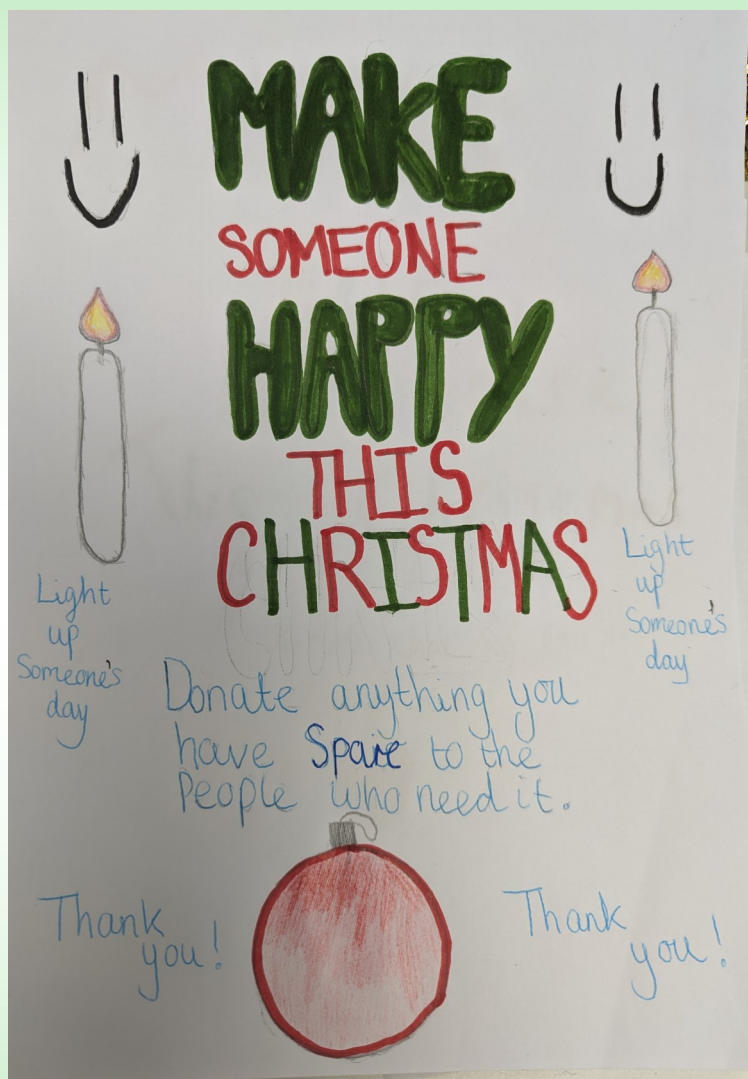 MAKE
SOMEONE
HAPPY
THIS
CHRISTMAS
Light
up
Someone's
day
Light
up
Someone's
day
Donate anything you
have Spare to the
People who need it.
Thank
you!
Thank
you!